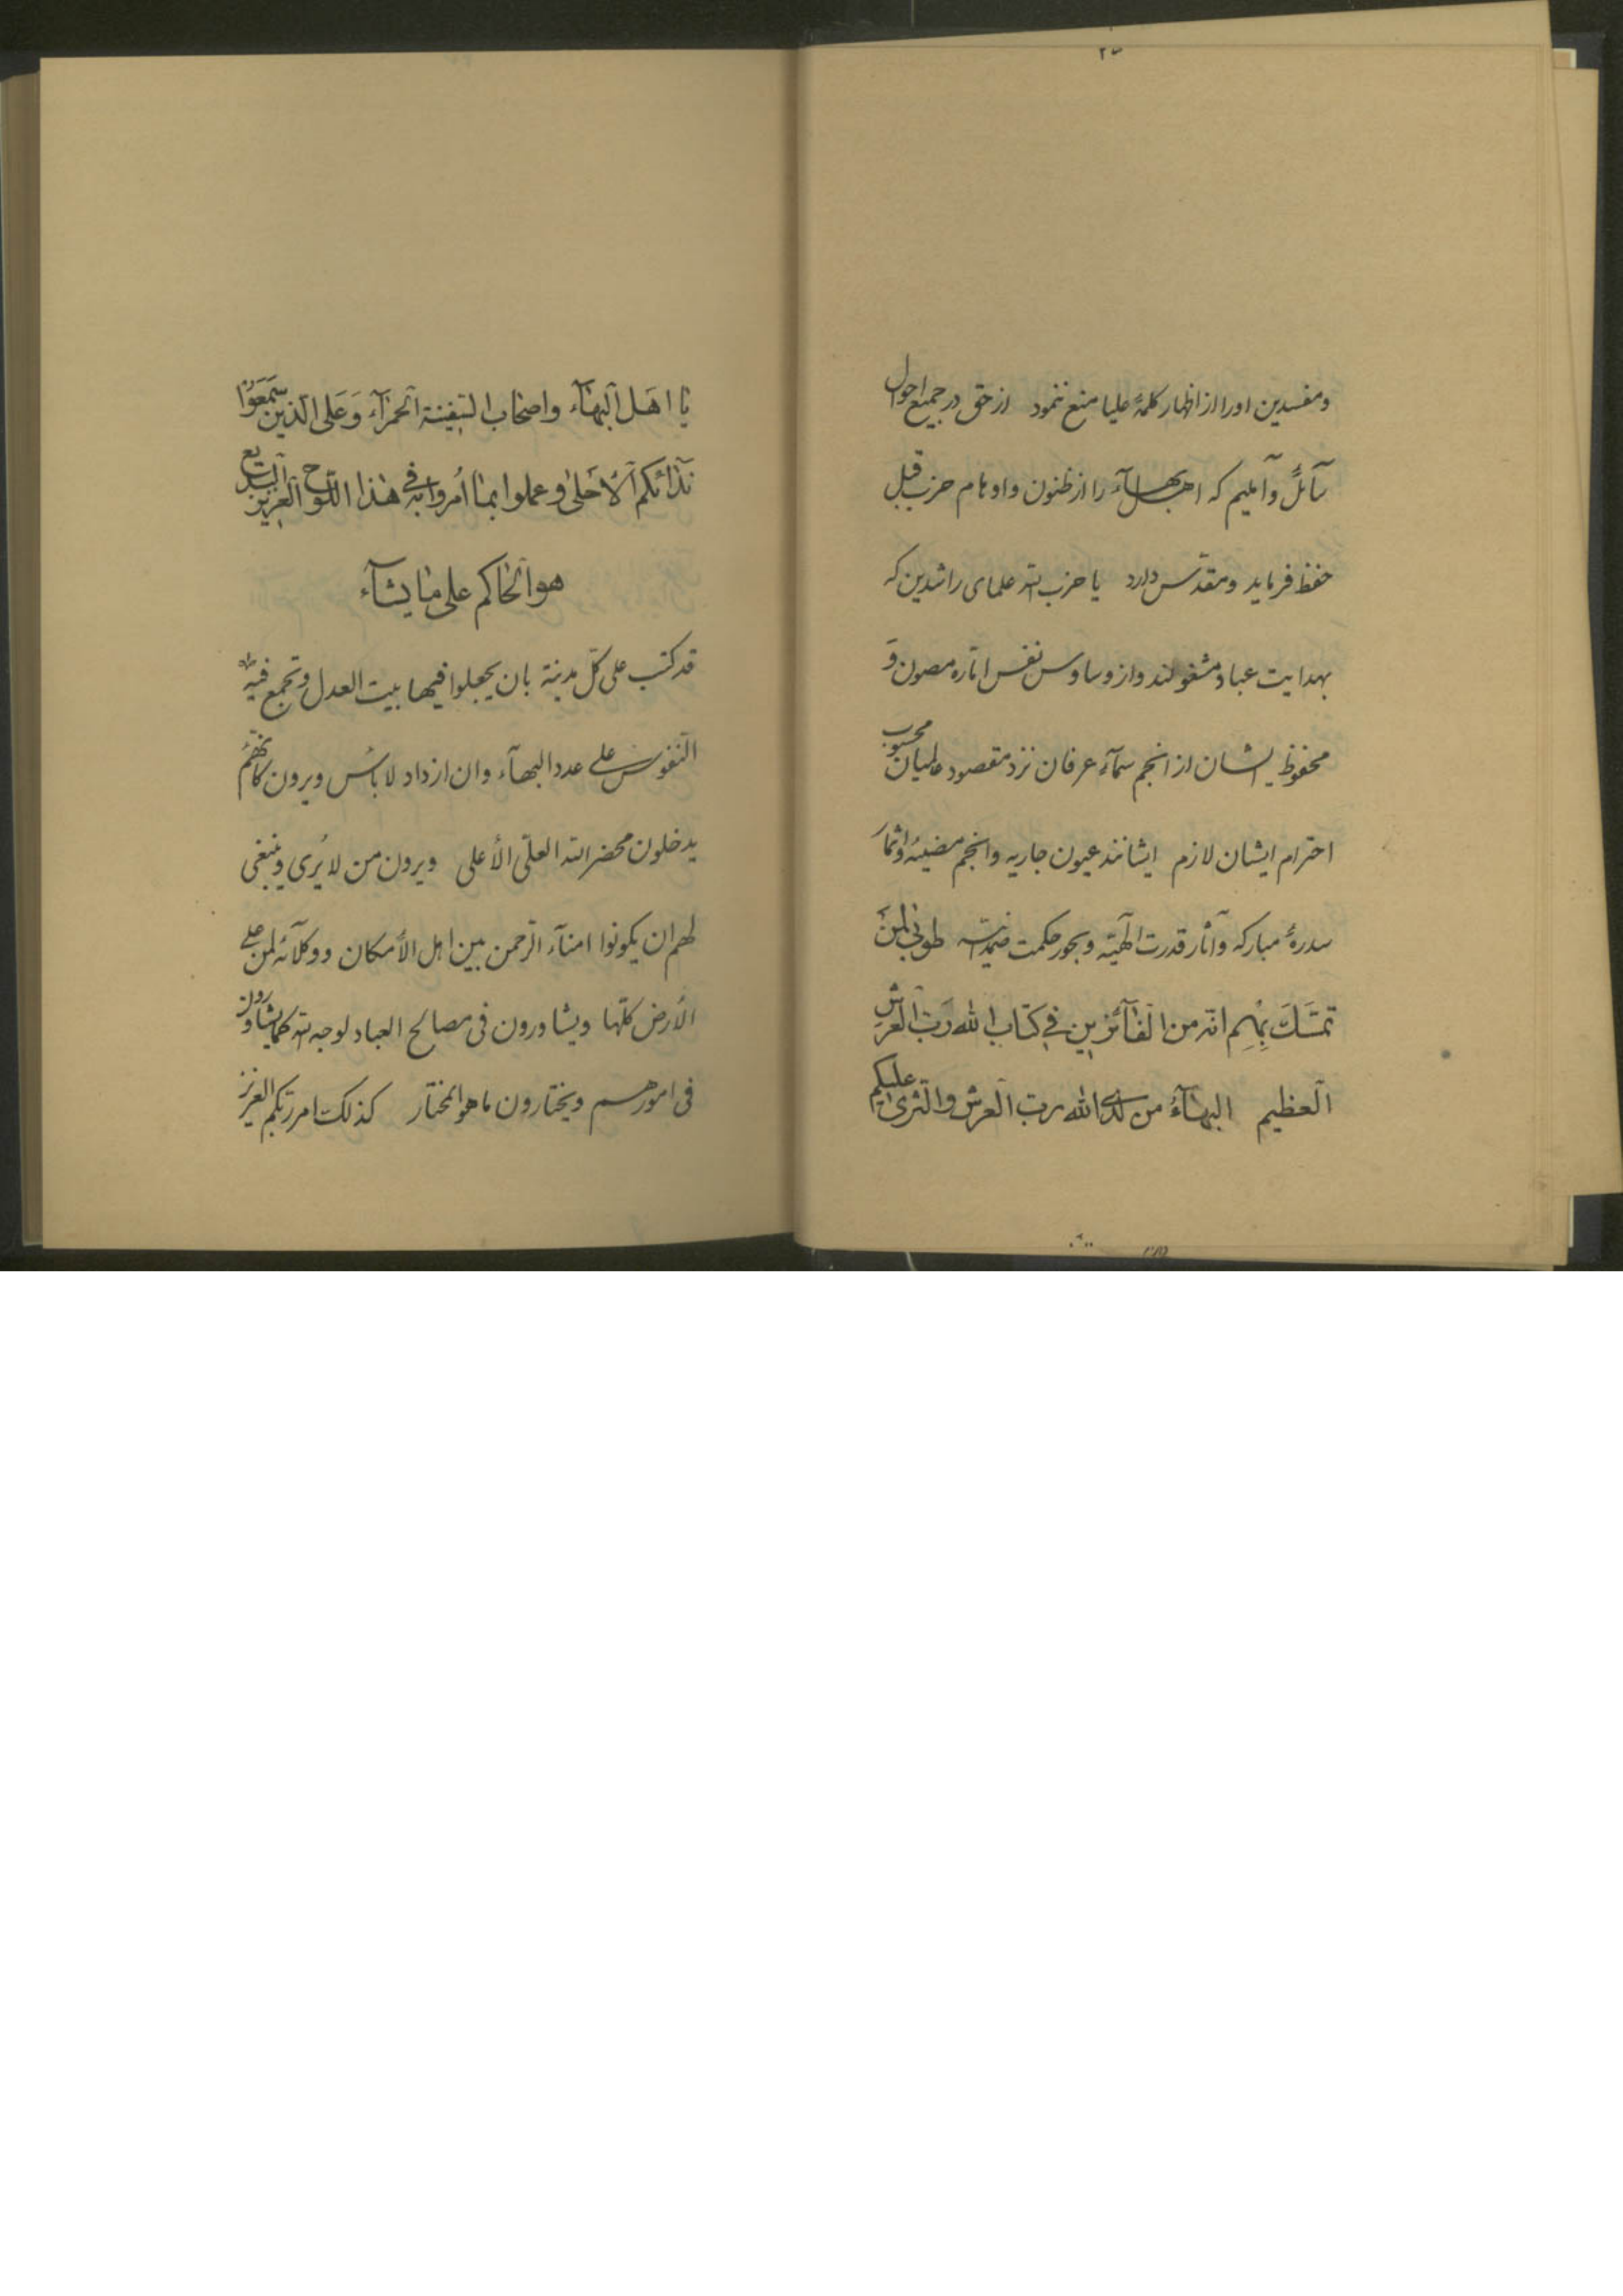 ومفسدین اورا از اظهار کلمهٔ علیا منع ننمود از حق در جمیع احوال
سآئل و آملیم که اهل بهآء را از ظنون و اوهام حزب قبل
حفظ فرماید و مقدس دارد یا حزب الله علمای راشدین که
بهدایت عباد مشغولند و از وساوس نفس امّاره مصون و
محفوظ ایشان از انجم سمآء عرفان نزد مقصود عالمیان محسوب
احترام ایشان لازم ایشانند عیون جاریه و انجم مضیئه و اثمار
سدرهٔ مبارکه و آثار قدرت الهیّه و بحور حکمت صمدانیّه طوبیٰ لِمَنْ
تمسّکَ بِهِم انّه من الفآئزین فی کتاب الله رَبّ العرش
العظیم البهآءُ من لدی الله ربّ العرش والثریٰ علیکم
یا اهَل البهآء واصحاب السّفینة الحمرآء وَعَلی الّذین سَمِعَوُا
نِدآئکم الأحلیٰ وعملوا بما اُمروا به فی هذا اللّوح العزیز البدیع
هوالحاکم علی ما یشآء
قد کتب علی کلّ مدینة بان یجعلوا فیها بیت العدل و تجمع فیه
النّفوس علی عدد البهآء وان ازداد لا بأس ویرون کانّهُم
یدخلون محضر الله العلیّ الأعلی ویرون من لا یُری وینبغی
لهم ان یکونوا امنآء الرّحمن بین اهل الأمکان و وکلآئه لمن علی
الأرض کلّها ویشاورون فی مصالح العباد لوجه الله کما یشاورون
فی امورهم ویختارون ما هو المختار کذلک امر ربّکم العزیز